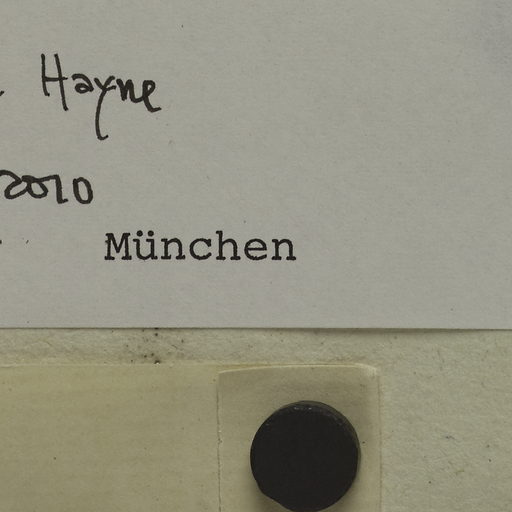 Hayne
2010
München